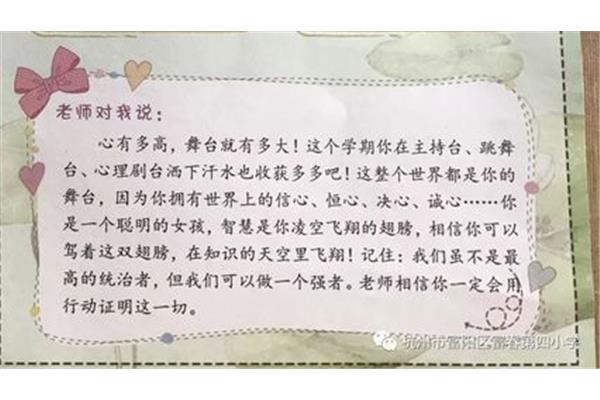 老师对我说：
心有多高，舞台就有多大！这个学期你在主持台、跳舞
台、心理剧台洒下汗水也收获多多吧！这整个世界都是你的
舞台，因为你拥有世界上的信心、恒心、决心、诚心……你
是一个聪明的女孩，智慧是你凌空飞翔的翅膀，相信你可以
驾着这双翅膀，在知识的天空里飞翔！记住：我们虽不是最
高的统治者，但我们可以做一个强者。老师相信你一定会用
行动证明这一切。
杭州市富阳区富春第四小学